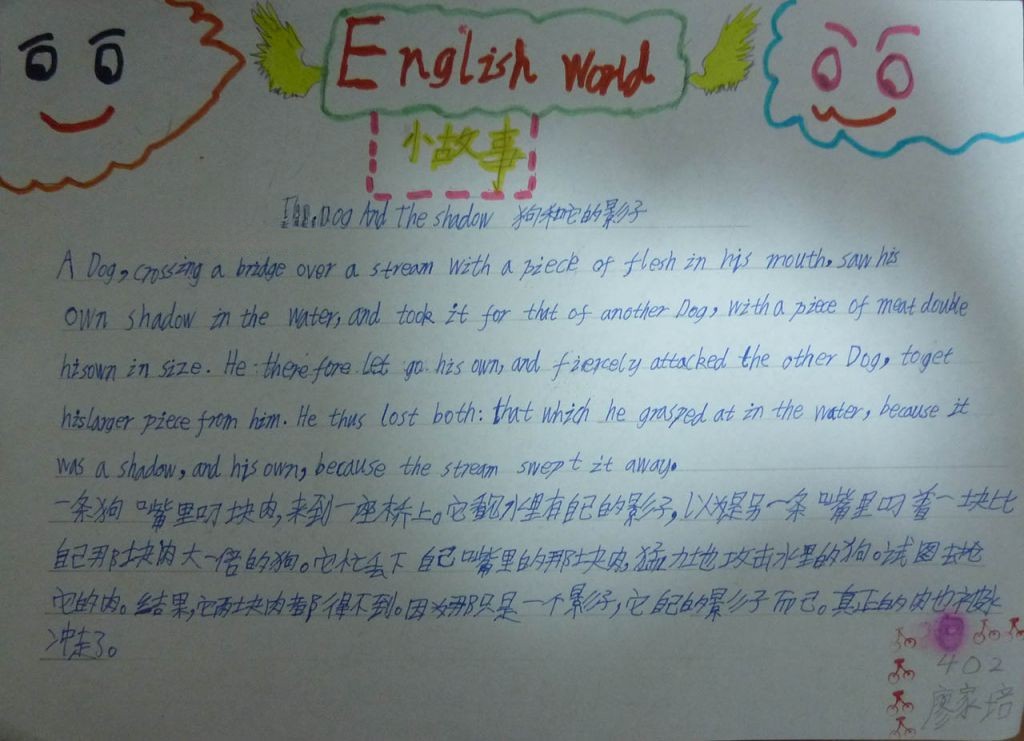 English World
小故事
The Dog And The shadow 狗和它的影子
A Dog, crossing a bridge over a stream with a piece of flesh in his mouth, saw his
own shadow in the water, and took it for that of another Dog, with a piece of meat double
hisown in size. He therefore let go his own, and fiercely attacked the other Dog, toget
hislarger piece from him. He thus lost both: that which he grasped at in the water, because it
was a shadow, and his own, because the stream swept it away.
一条狗嘴里叼块肉,来到一座桥上。它看水里有自己的影子,以为是另一条嘴里叼着一块比
自己那块肉大一倍的狗。它忙丢下自己嘴里的那块肉,猛力地攻击水里的狗。试图去抢
它的肉。结果,它两块肉都得不到。因为那只是一个影子,它自己的影子而已。真正的肉也被水
冲走了。
402
廖家培